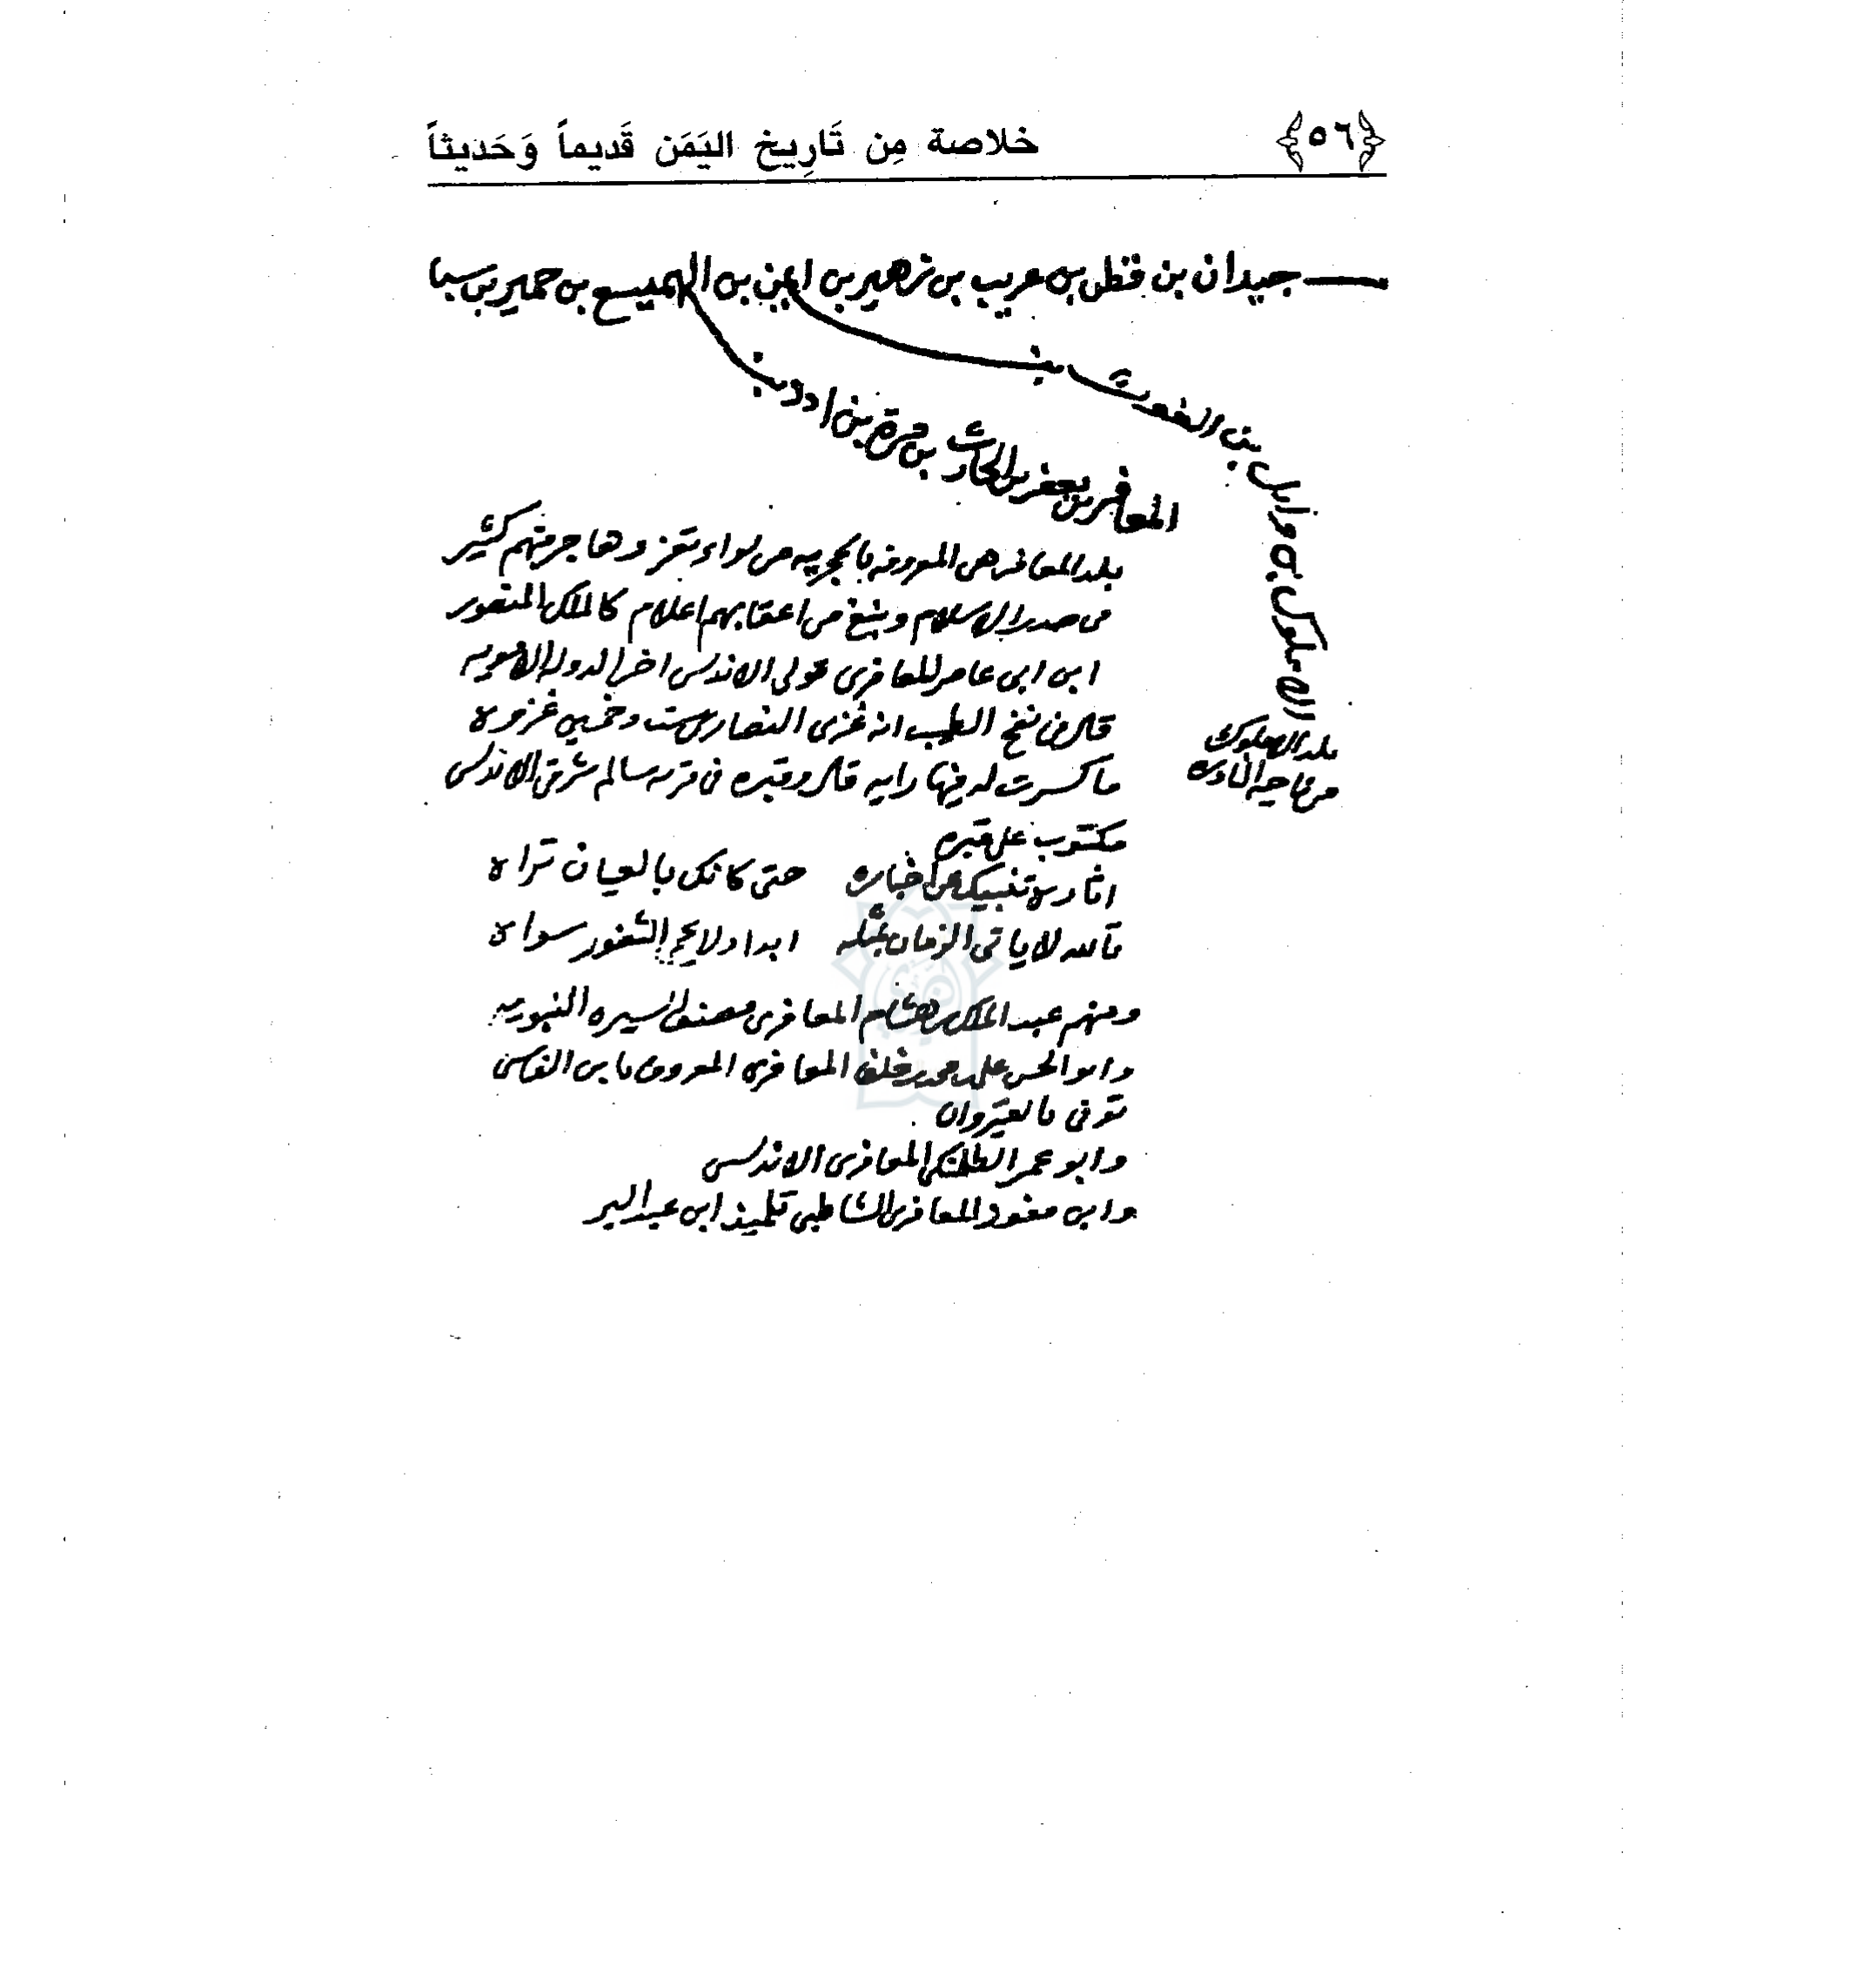 ﴿٥٦﴾ خلاصة مِن تَارِيخ اليَمَن قَديماً وَحَديثاً
جيدان بن قطن بن عريب بن زهير بن ايمن بن الهميسع بن حمير بن سبا
بن الغوث بن
وايل بن
الاملوك بن
بلد الاملوك
من ناحية
المعافر بن يعفر بن الحارث بن مرة بن ادد بن
بلد المعافر هي المعروفه بالحجريه من لواء تعز وهاجر منهم كثير
في صدر الاسلام ونبغ من اعقابهم اعلام كالملك المنصور
ابن ابي عامر المعافري متولي الاندلس اخر الدولة الامويه
قال في نفح الطيب انه غزى النصارى ست وخمسين غزوه
ما كسرت له فيها رايه قال وقبره في مدينه سالم شرق الاندلس
مكتوب على قبره
اثاره تنبيك عن اخباره حتى كانك بالعيان تراه
تالله لا ياتي الزمان بمثله ابدا ولا يحمي الثغور سواه
ومنهم عبد الملك بن هشام المعافري مصنف السيره النبويه
وابو الحسن علي بن محمد بن خلف المعافري المعروف بابن القابسي
توفي بالقيروان
وابو عمر الطلمنكي المعافري الاندلسي
وابن مفوز المعافري الشاطبي تلميذ ابن عبد البر